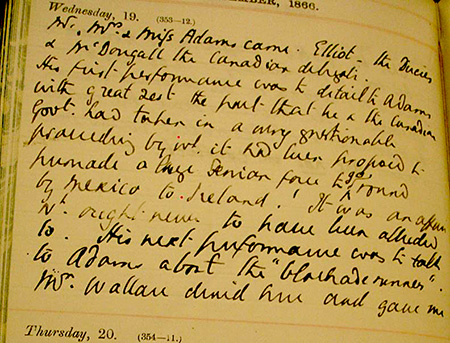 EMBER, 1866.
Wednesday, 19. (353—12.)
Mr., Mrs. & Miss Adams came. Elliot - the
& McDougall the Canadian delegate.
His first performance was to detail to Adams
with great zest the part that he & the Canadian
Govt. had taken in a very questionable
proceeding by wh. it had been proposed to
persuade a large Fenian force to go round
by Mexico to Ireland! It was an affair
wh. ought never to have been alluded
to. His next performance was to talk
to Adams about the "blockade runners".
Mrs. Wallace dined here and gave me
Thursday, 20. (354—11.)